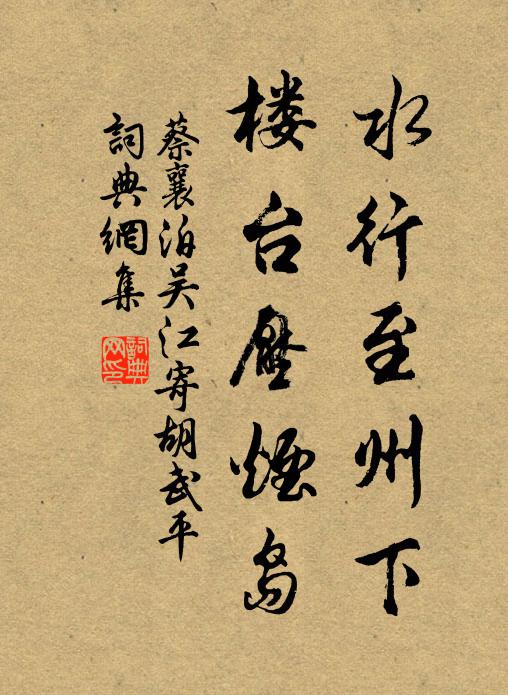 水行至州下
楼台压煙岛
蔡襄泊吴江寄胡武平
詞典網集
詞典网印